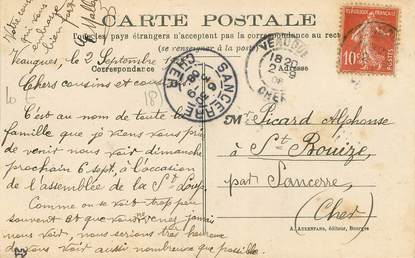 CARTE POSTALE
Tous les pays étrangers n'acceptent pas la correspondance au recto
(se renseigner à la poste)
Correspondance
Adresse
Veaugues, le 2 Septembre
Chers cousins et cous
C'est au nom de toute la
famille que je viens vous prier
de venir nous voir dimanche
prochain 6 sept. à l'occasion
de l'assemblée de la St Loup.
Comme on se voit trop peu
souvent et que vous venez jamais
nous voir, nous serions très heureux
de vous voir aussi nombreux que possible.
Votre
embrasse
bien
SANCERRE
CHER
VEAUGUES
18 20
2 - 9
CHER
10
M Picard Alphonse
à St Bouize
par Sancerre
(Cher)
A. AUXENFANS, éditeur, Bourges